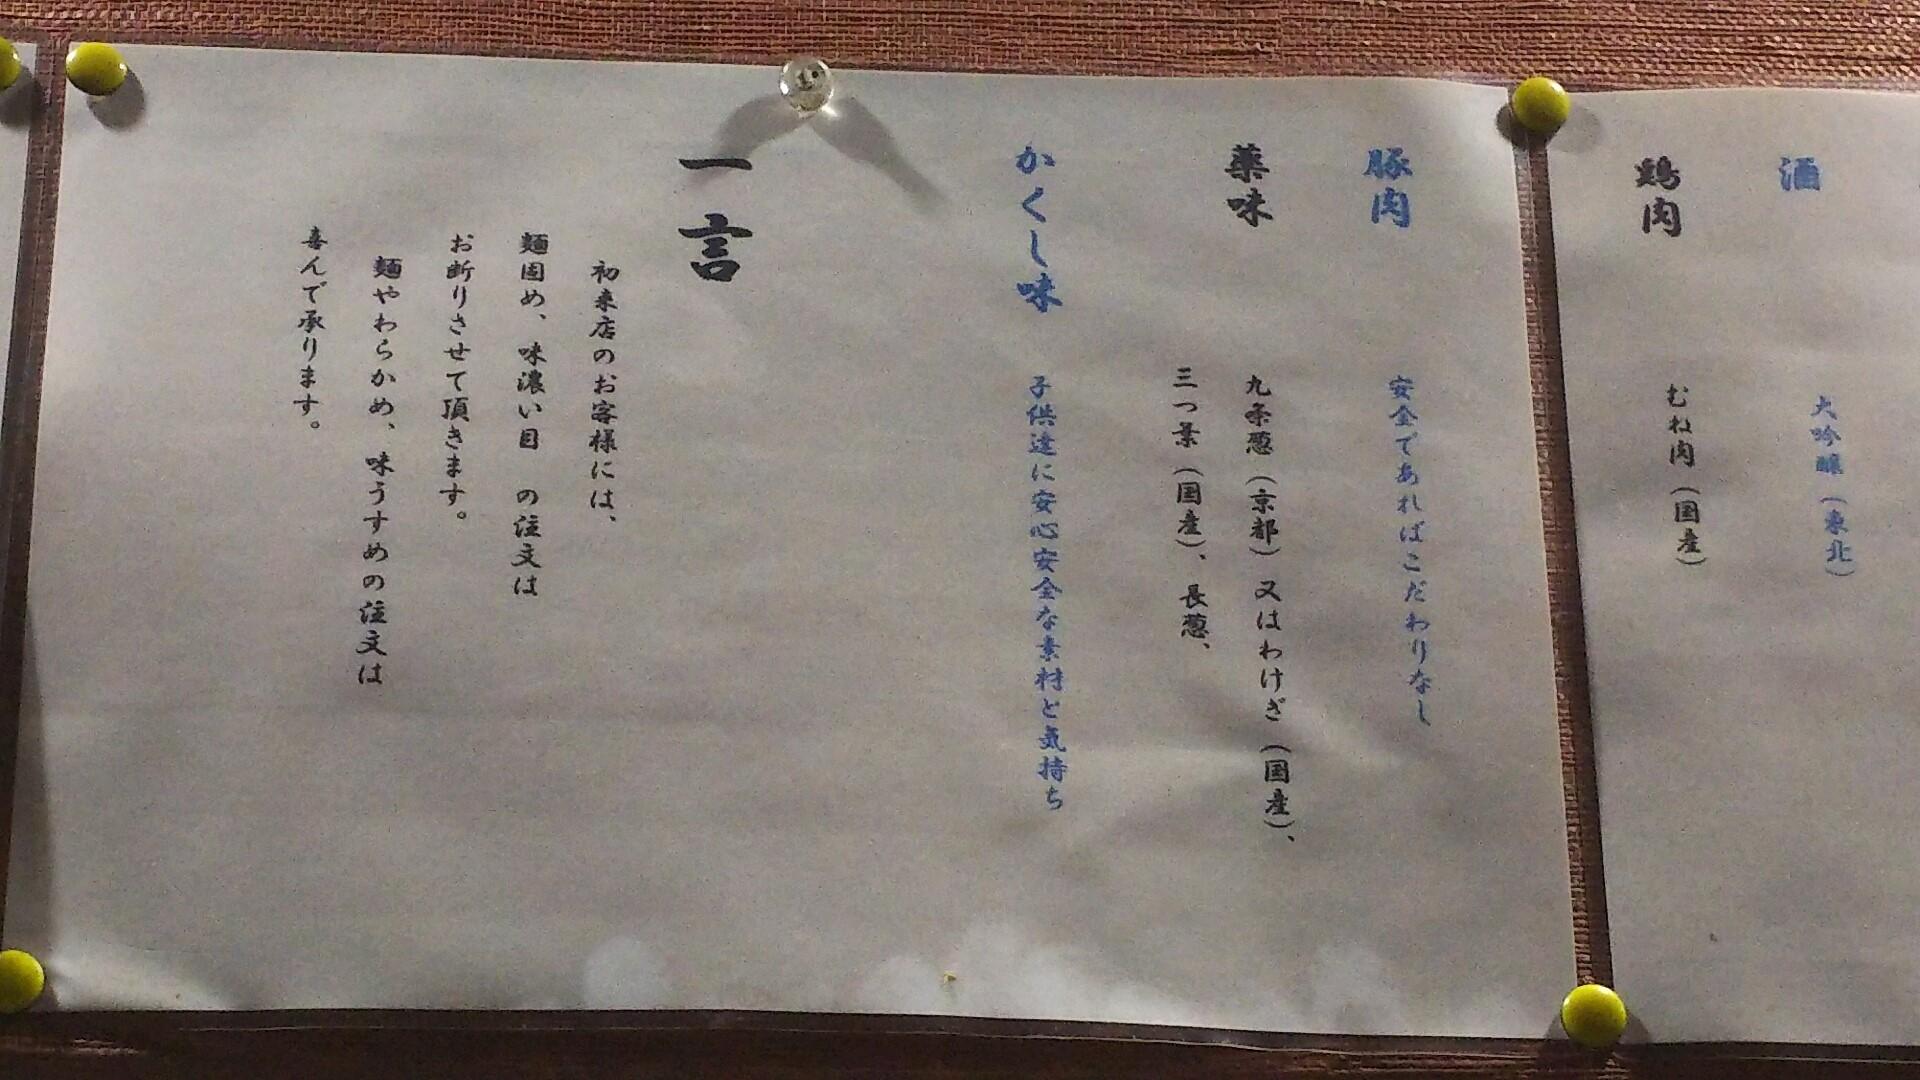 酒 大吟醸（東北）
鶏肉 むね肉（国産）
豚肉 安全であればこだわりなし
薬味 九条葱（京都）又はわけぎ（国産）、
三つ葉（国産）、長葱、
かくし味 子供達に安心安全な素材と気持ち
一言
初来店のお客様には、
麺固め、味濃い目 の注文は
お断りさせて頂きます。
麺やわらかめ、味うすめの注文は
喜んで承ります。